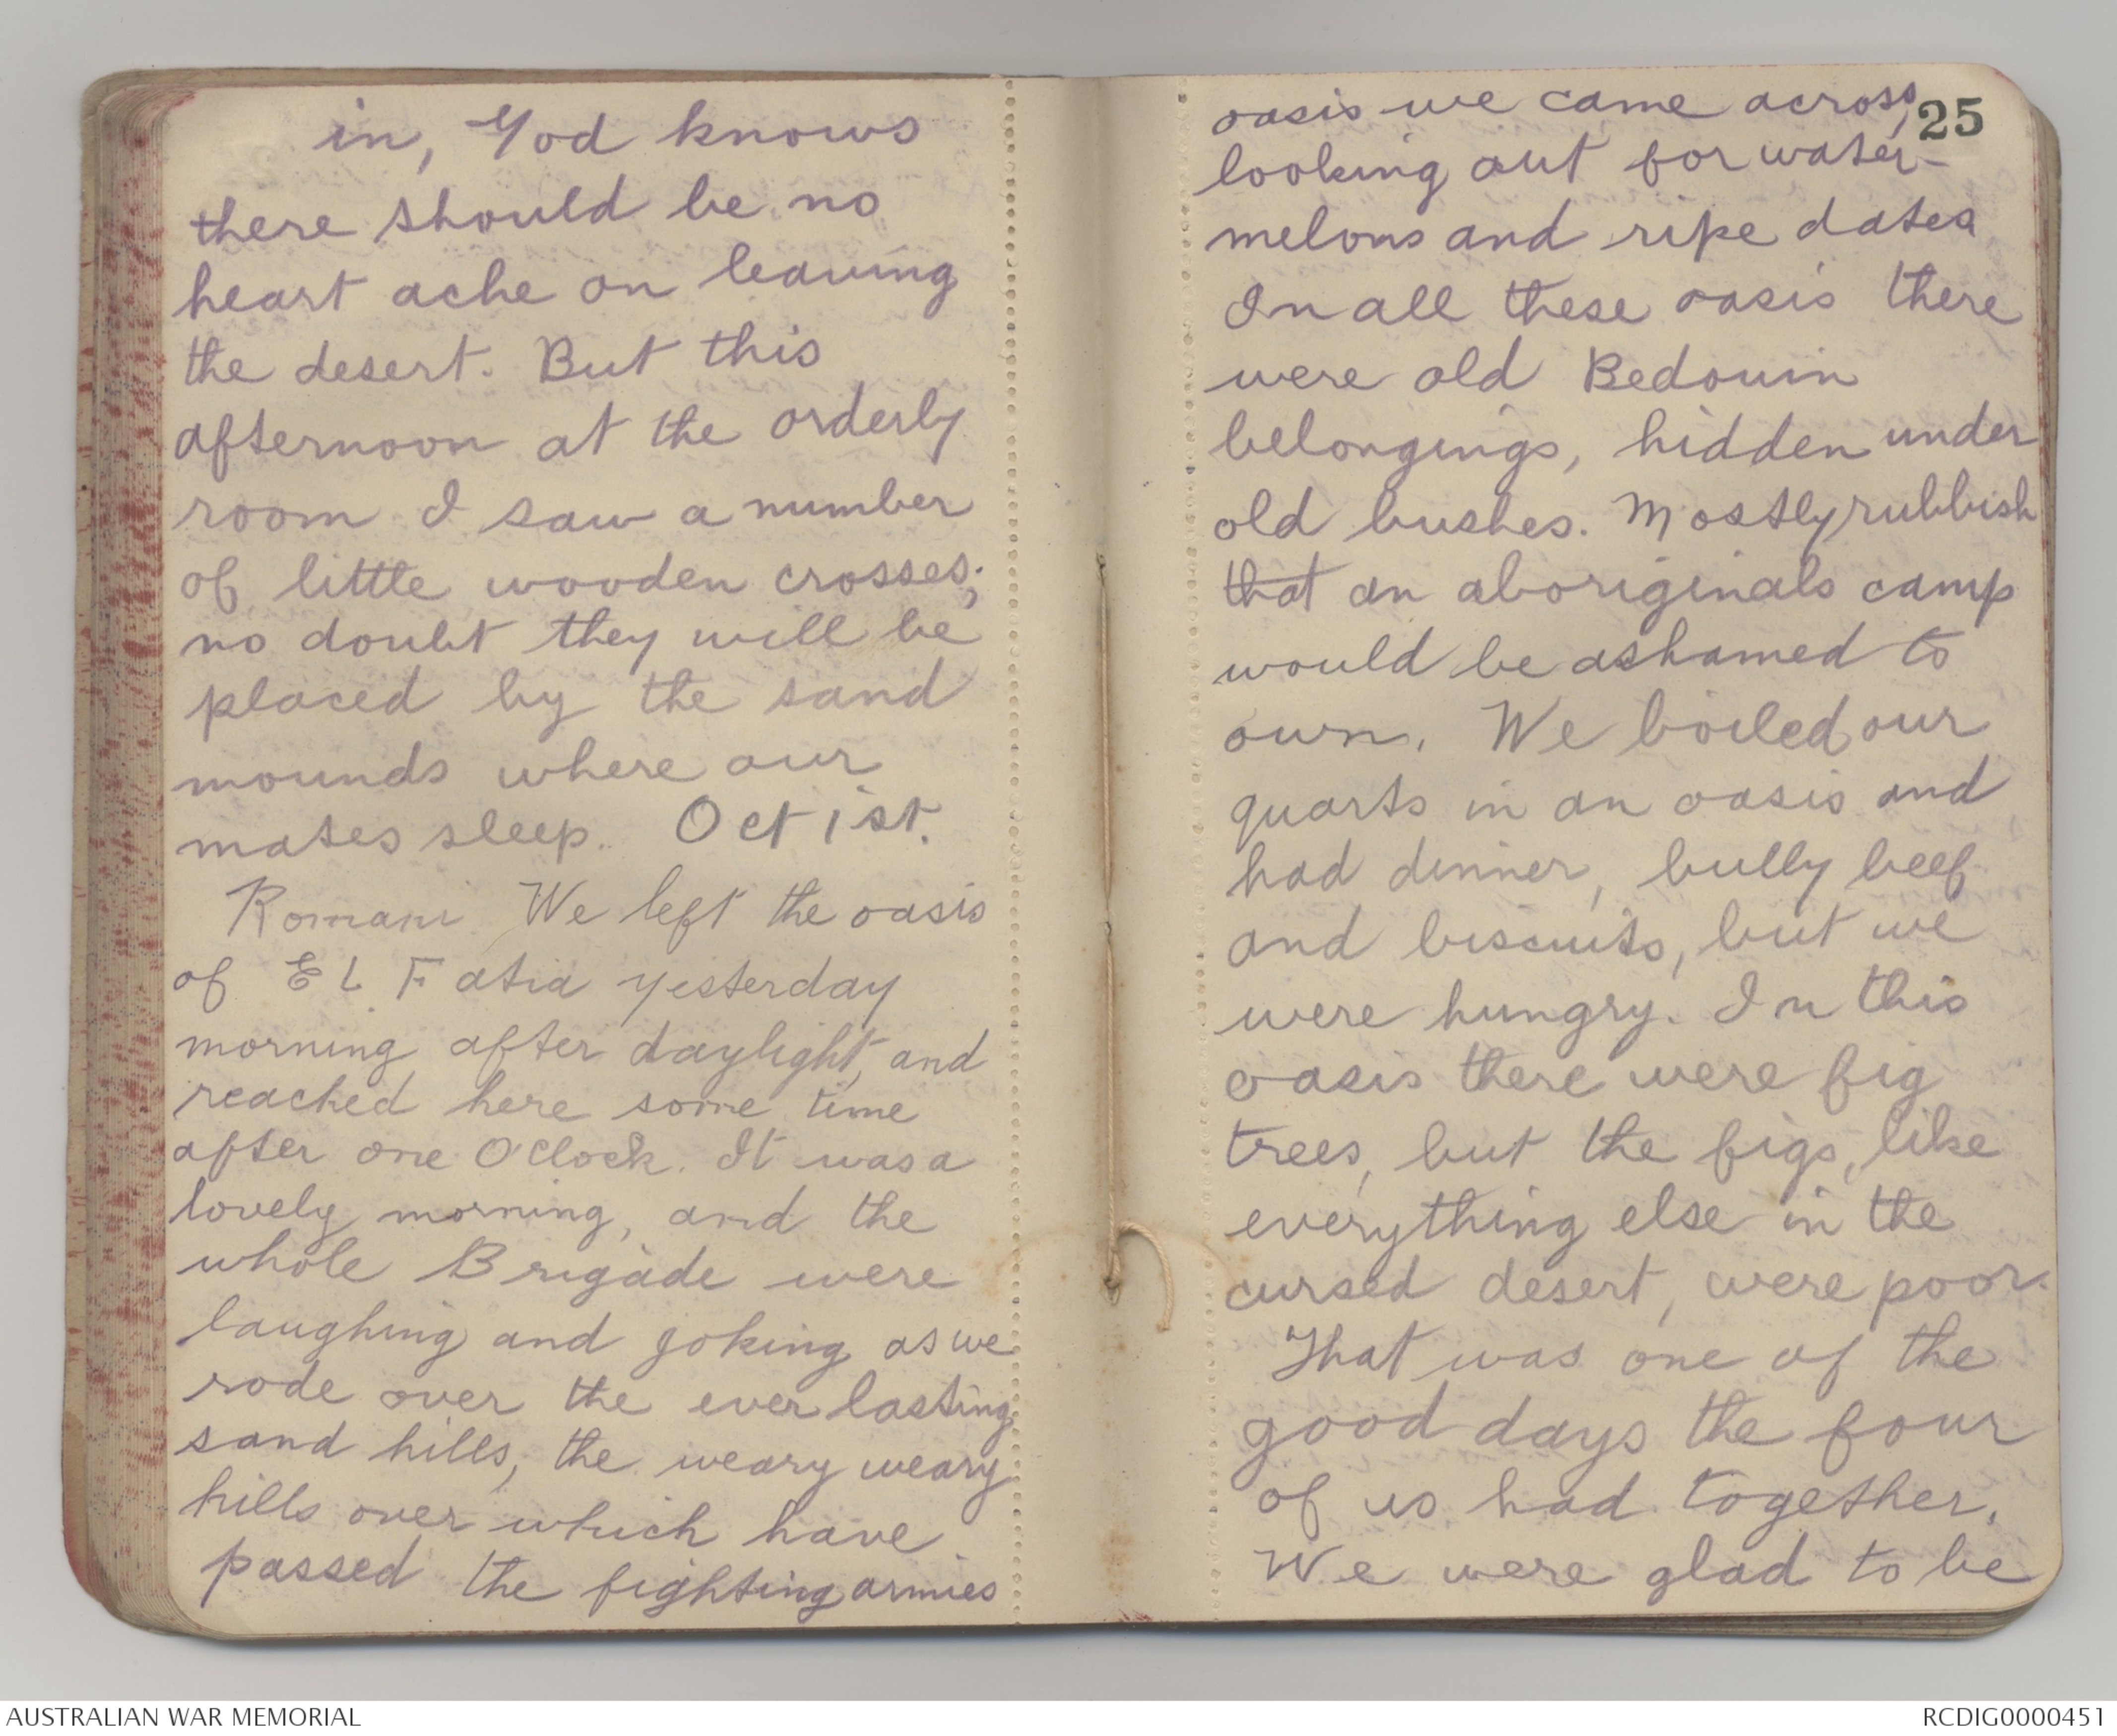 in, God knows
there should be no
heart ache on leaving
the desert. But this
afternoon at the orderly
room I saw a number
of little wooden crosses;
no doubt they will be
placed by the sand
mounds where our
mates sleep. Oct 1st.
Romani We left the oasis
of EL Fatia yesterday
morning after daylight, and
reached here some time
after one O'Clock. It was a
lovely morning, and the
whole Brigade were
laughing and joking as we
rode over the ever lasting
sand hills, the weary weary
hills over which have
passed the fighting armies
25
oasis we came across,
looking out for water-
melons and ripe dates
In all these oasis there
were old Bedouin
belongings, hidden under
old bushes. Mostly rubbish
that an aboriginals camp
would be ashamed to
own. We boiled our
quarts in an oasis and
had dinner, bully beef
and biscuits, but we
were hungry. In this
oasis there were fig
trees, but the figs, like
everything else in the
cursed desert, were poor.
That was one of the
good days the four
of us had together.
We were glad to be
AUSTRALIAN WAR MEMORIAL
RCDIG0000451